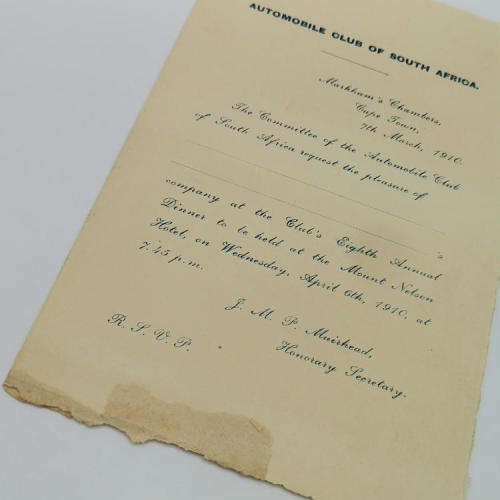 AUTOMOBILE CLUB OF SOUTH AFRICA.
Markham's Chambers,
Cape Town,
7th March, 1910.
The Committee of the Automobile Club
of South Africa request the pleasure of
's
company at the Club's Eighth Annual
Dinner to be held at the Mount Nelson
Hotel, on Wednesday, April 6th, 1910, at
7.45 p.m.
J. M. P. Muirhead,
Honorary Secretary.
R. S. V. P.